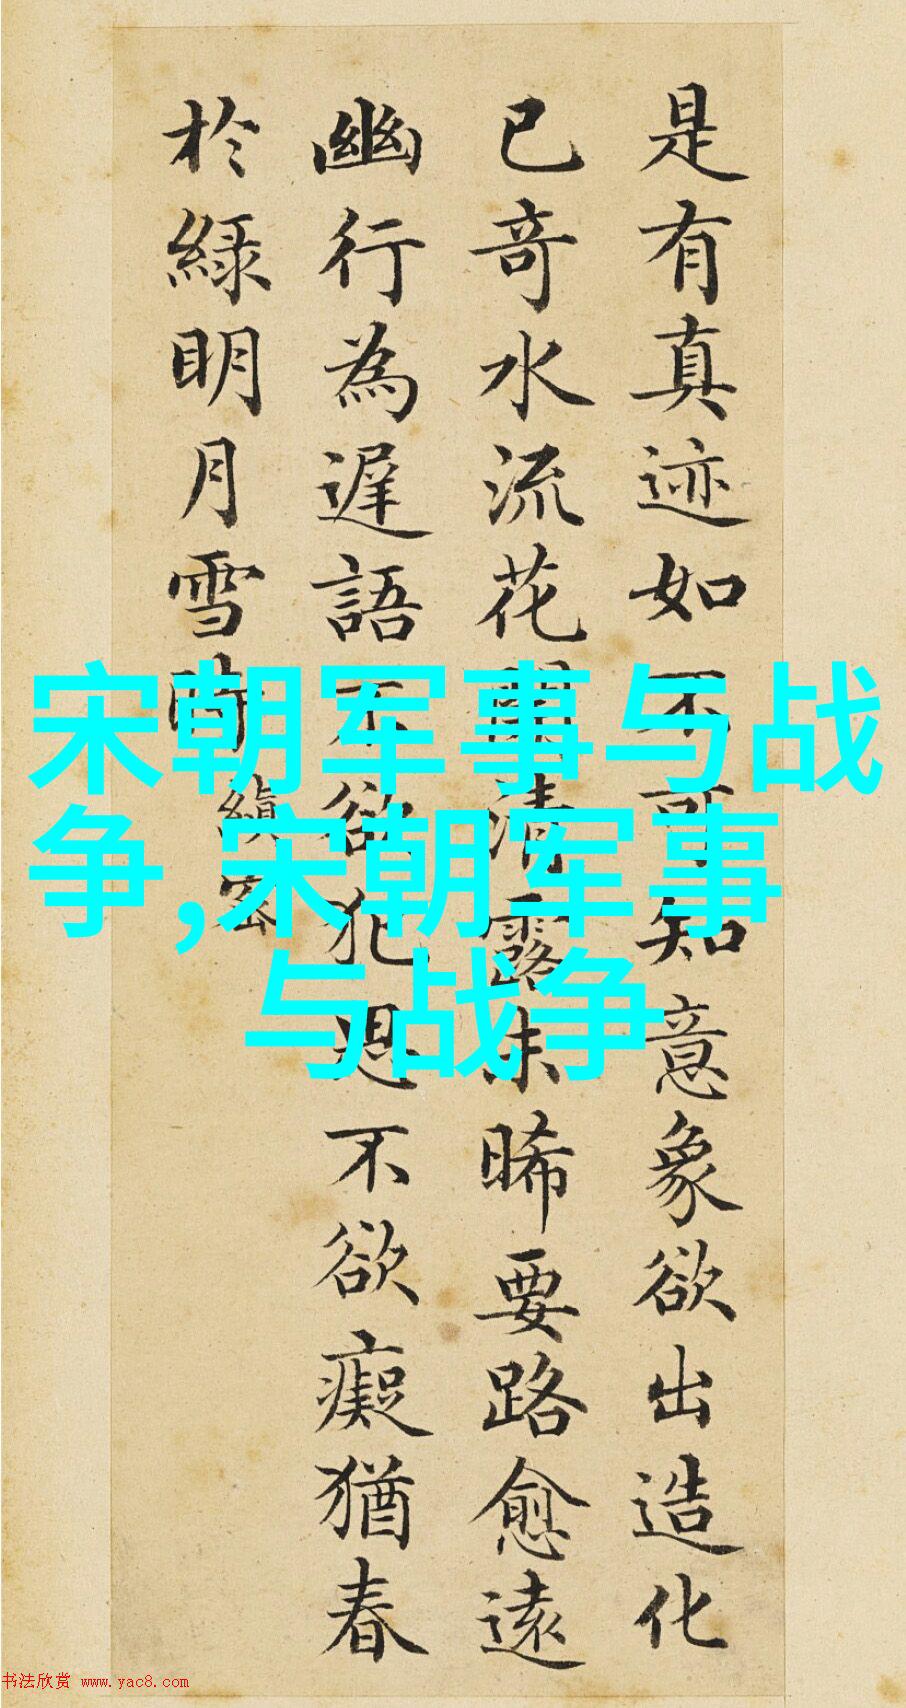 是有真迹如不可知意象欲出造化
已奇水流花開清露未晞要路愈遠
幽行為遲語不欲犯思不欲癡猶春
於綠明月雪時
縝密
宋朝军事与战
争,宋朝军事
与战争
书法欣赏 www.yac8.com